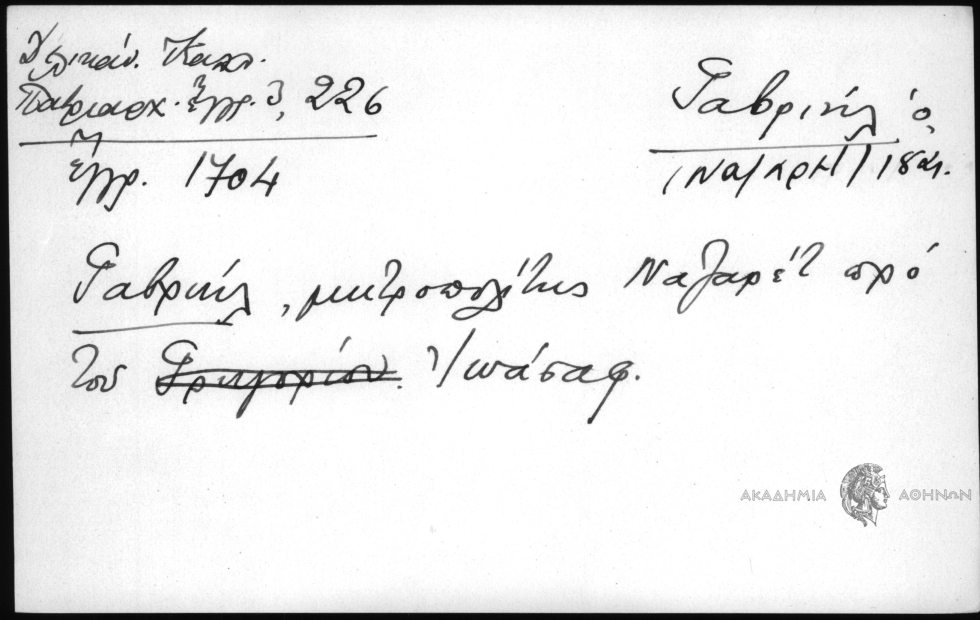 Δελικάν. Καλλ.
Πατριαρχ. Ἔγγρ. 3, 226
ἔγγρ. 1704
Γαβριήλ ὁ
(ΝΑ/ΚΡΗ) 18 αι.
Γαβριήλ, μητροπολίτης Ναζαρέτ πρό
του Γρηγορίου. Ἰωάσαφ.
ΑΚΑΔΗΜΙΑ ΑΘΗΝΩΝ